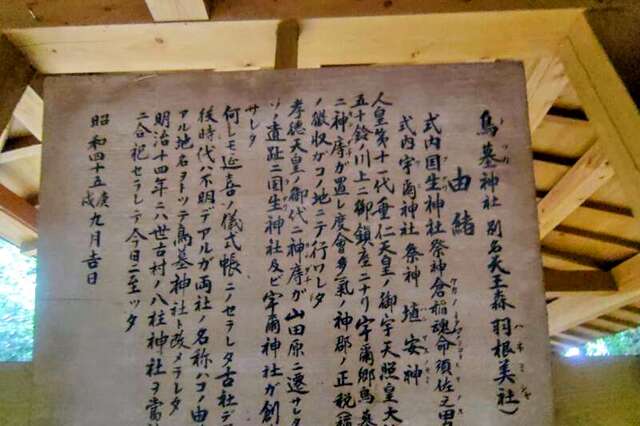 鳥墓神社 別名天王森 羽根美社)
由緒
式内国生神社 祭神 倉稲魂命 須佐之男
式内宇爾神社 祭神 埴安神
人皇第十一代垂仁天皇ノ御宇天照皇大神
五十鈴ノ川上ニ御鎮座ニナリ宇爾郷鳥墓
ニ神庤が置レ度會多氣ノ神郡ノ正税(
ノ徴収がコノ地ニテ行ワレタ
孝徳天皇ノ御代ニ神庤が山田原ニ遷サレタ
ソノ遺跡ニ国生神社及ビ宇爾神社が創
サレタ
何レモ延喜ノ儀式帳ニノセラレタ古社デ
後時代ハ不明デアルが両社ノ名称ハコノ由
アル地名ヲトッテ鳥墓神社ト改メラレタ
明治十四年ニハ世古村ノ八柱神社ヲ當
ニ合祀セラレテ今日ニ至ッタ
昭和四十五庚戌九月吉日